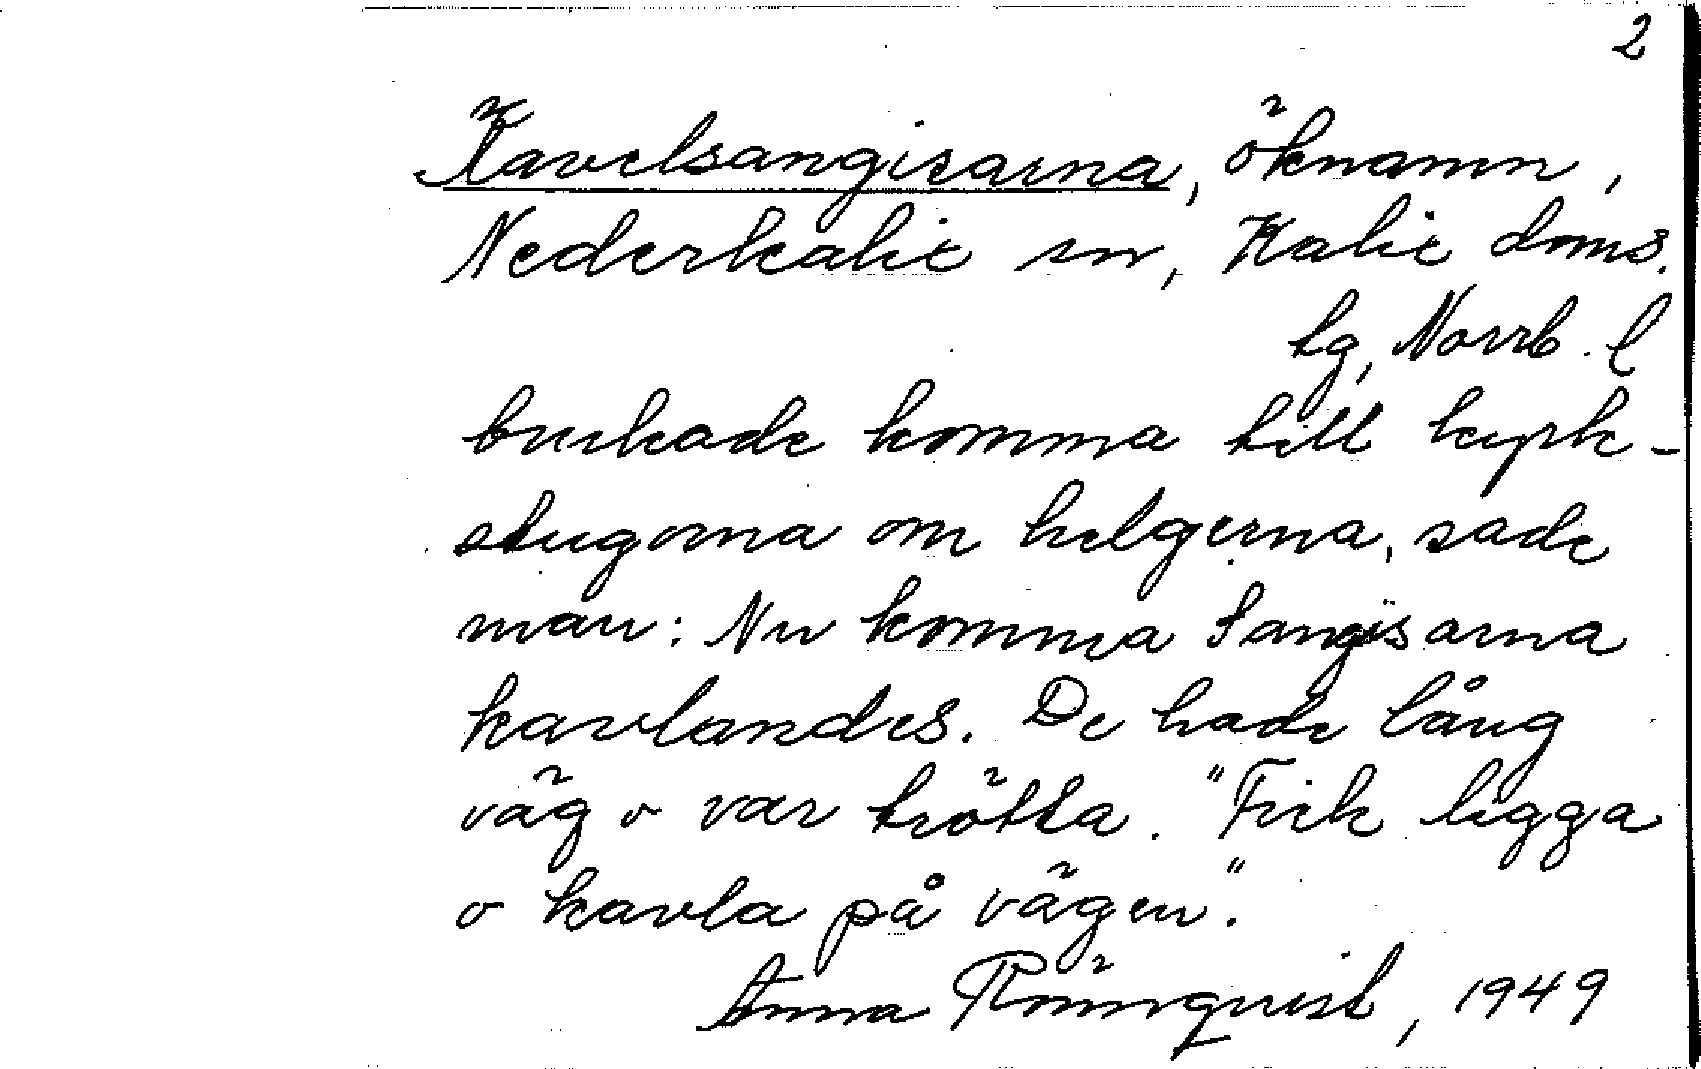 2
Kavelsangisarna, öknamn,
Nederkalix sn, Kalix doms.
tg, Norrb. l
brukade komma till kyrk-
stugorna om helgerna, sade
man: Nu komma Sangisarna
kavlandes. De hade lång
väg o var trötta. "Fick ligga
o kavla på vägen."
Anna Rönnquist, 1949